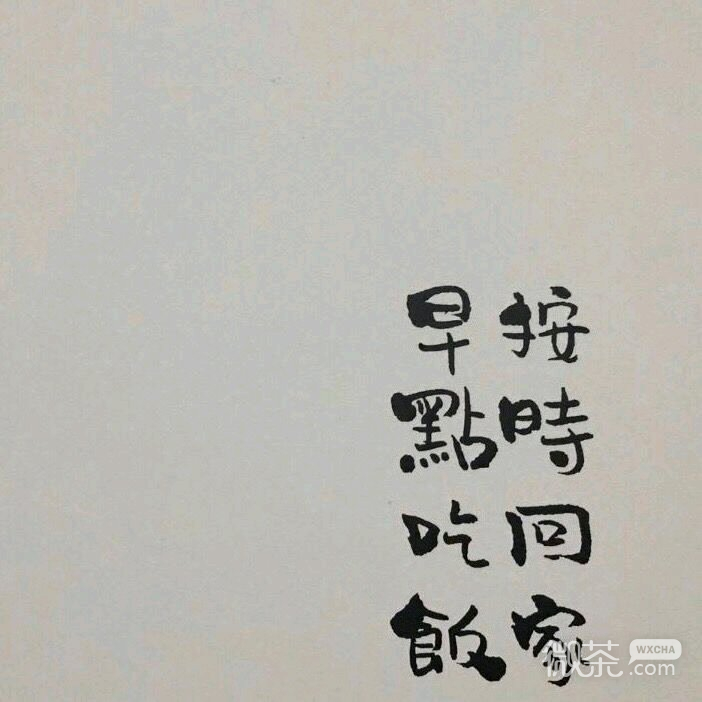 按時回家
早點吃飯
微茶 WXCHA .com